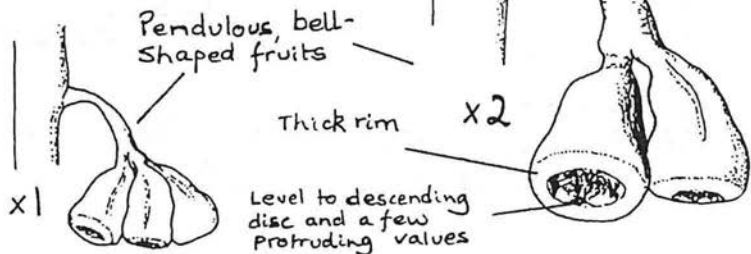 Pendulous, bell-
shaped fruits
Thick rim
x2
x1
Level to descending
disc and a few
protruding values